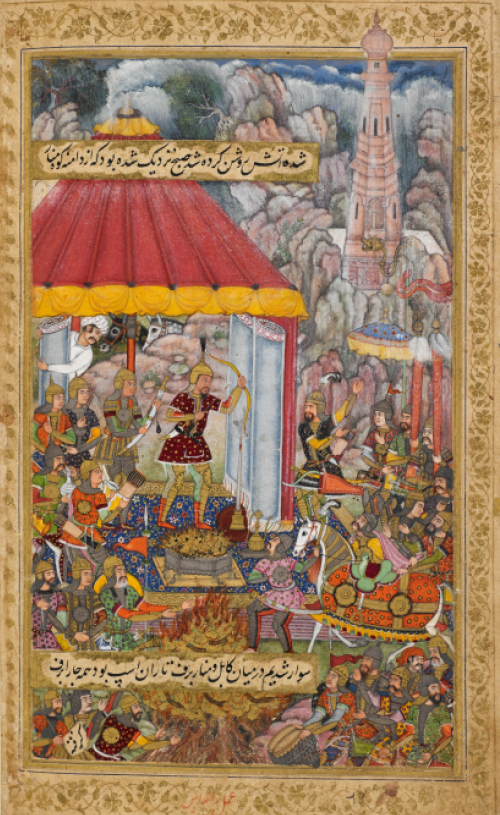 شده آتش روشن کرده شد صبح نزدیک شده بود که از دامنه کوه منار
سوار شدیم در میان کابل و منار برف تا ران اسپ بود همه جا را برف
گرفته
عمل